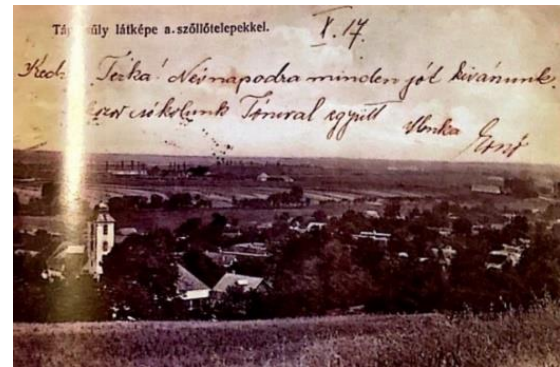 Táp süly látképe a szőllőtelepekkel.
X. 17.
Kedv Terka! Névnapodra minden jót kivánunk.
csókolunk Tónival együtt
Ilonka Jenő